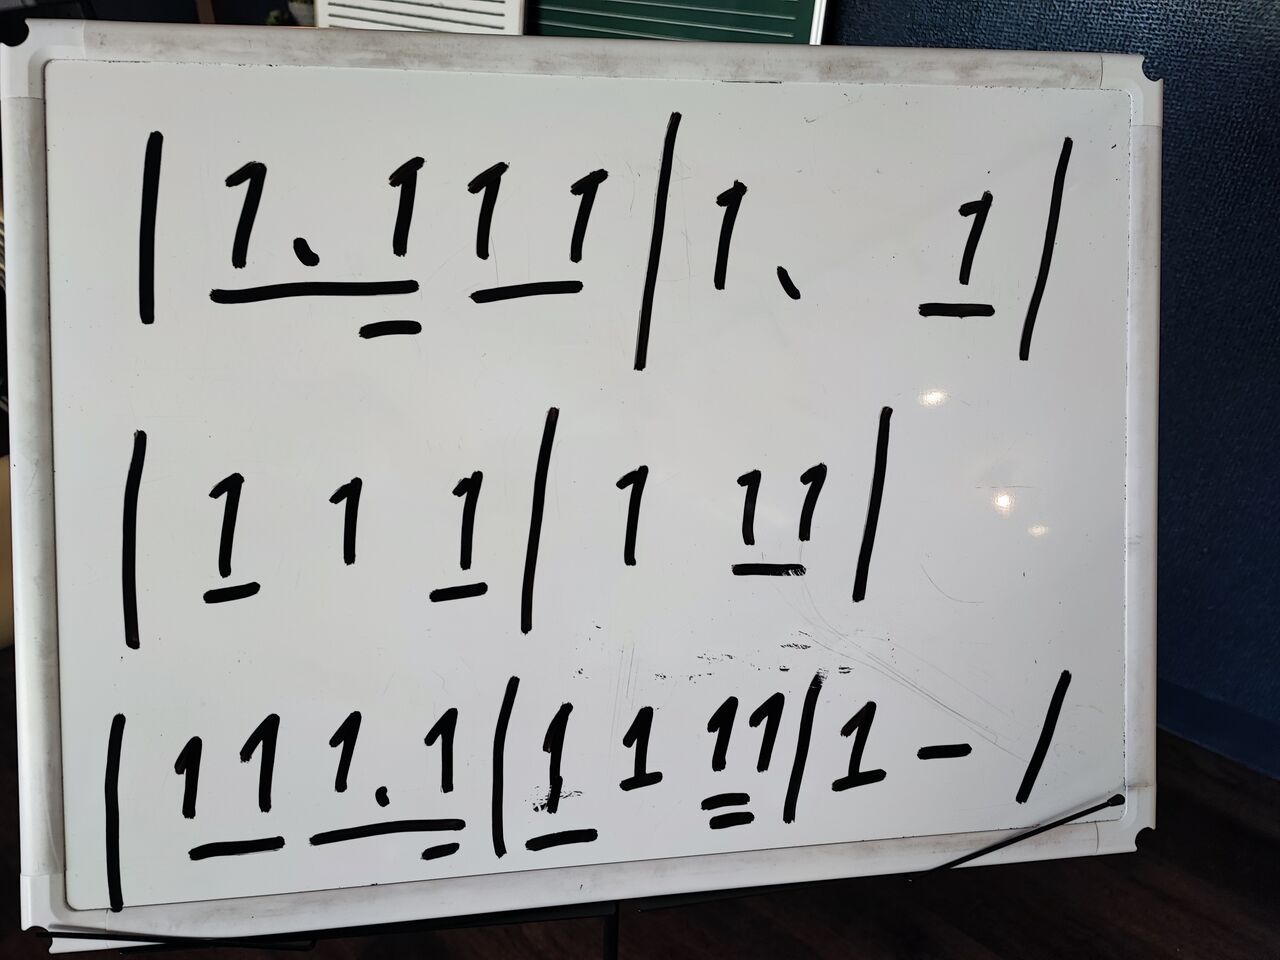 | 1. 1 1 1 | 1. 1 |
| 1 1 1 | 1 1 1 |
| 1 1 1. 1 | 1 1 1 1 | 1 - |